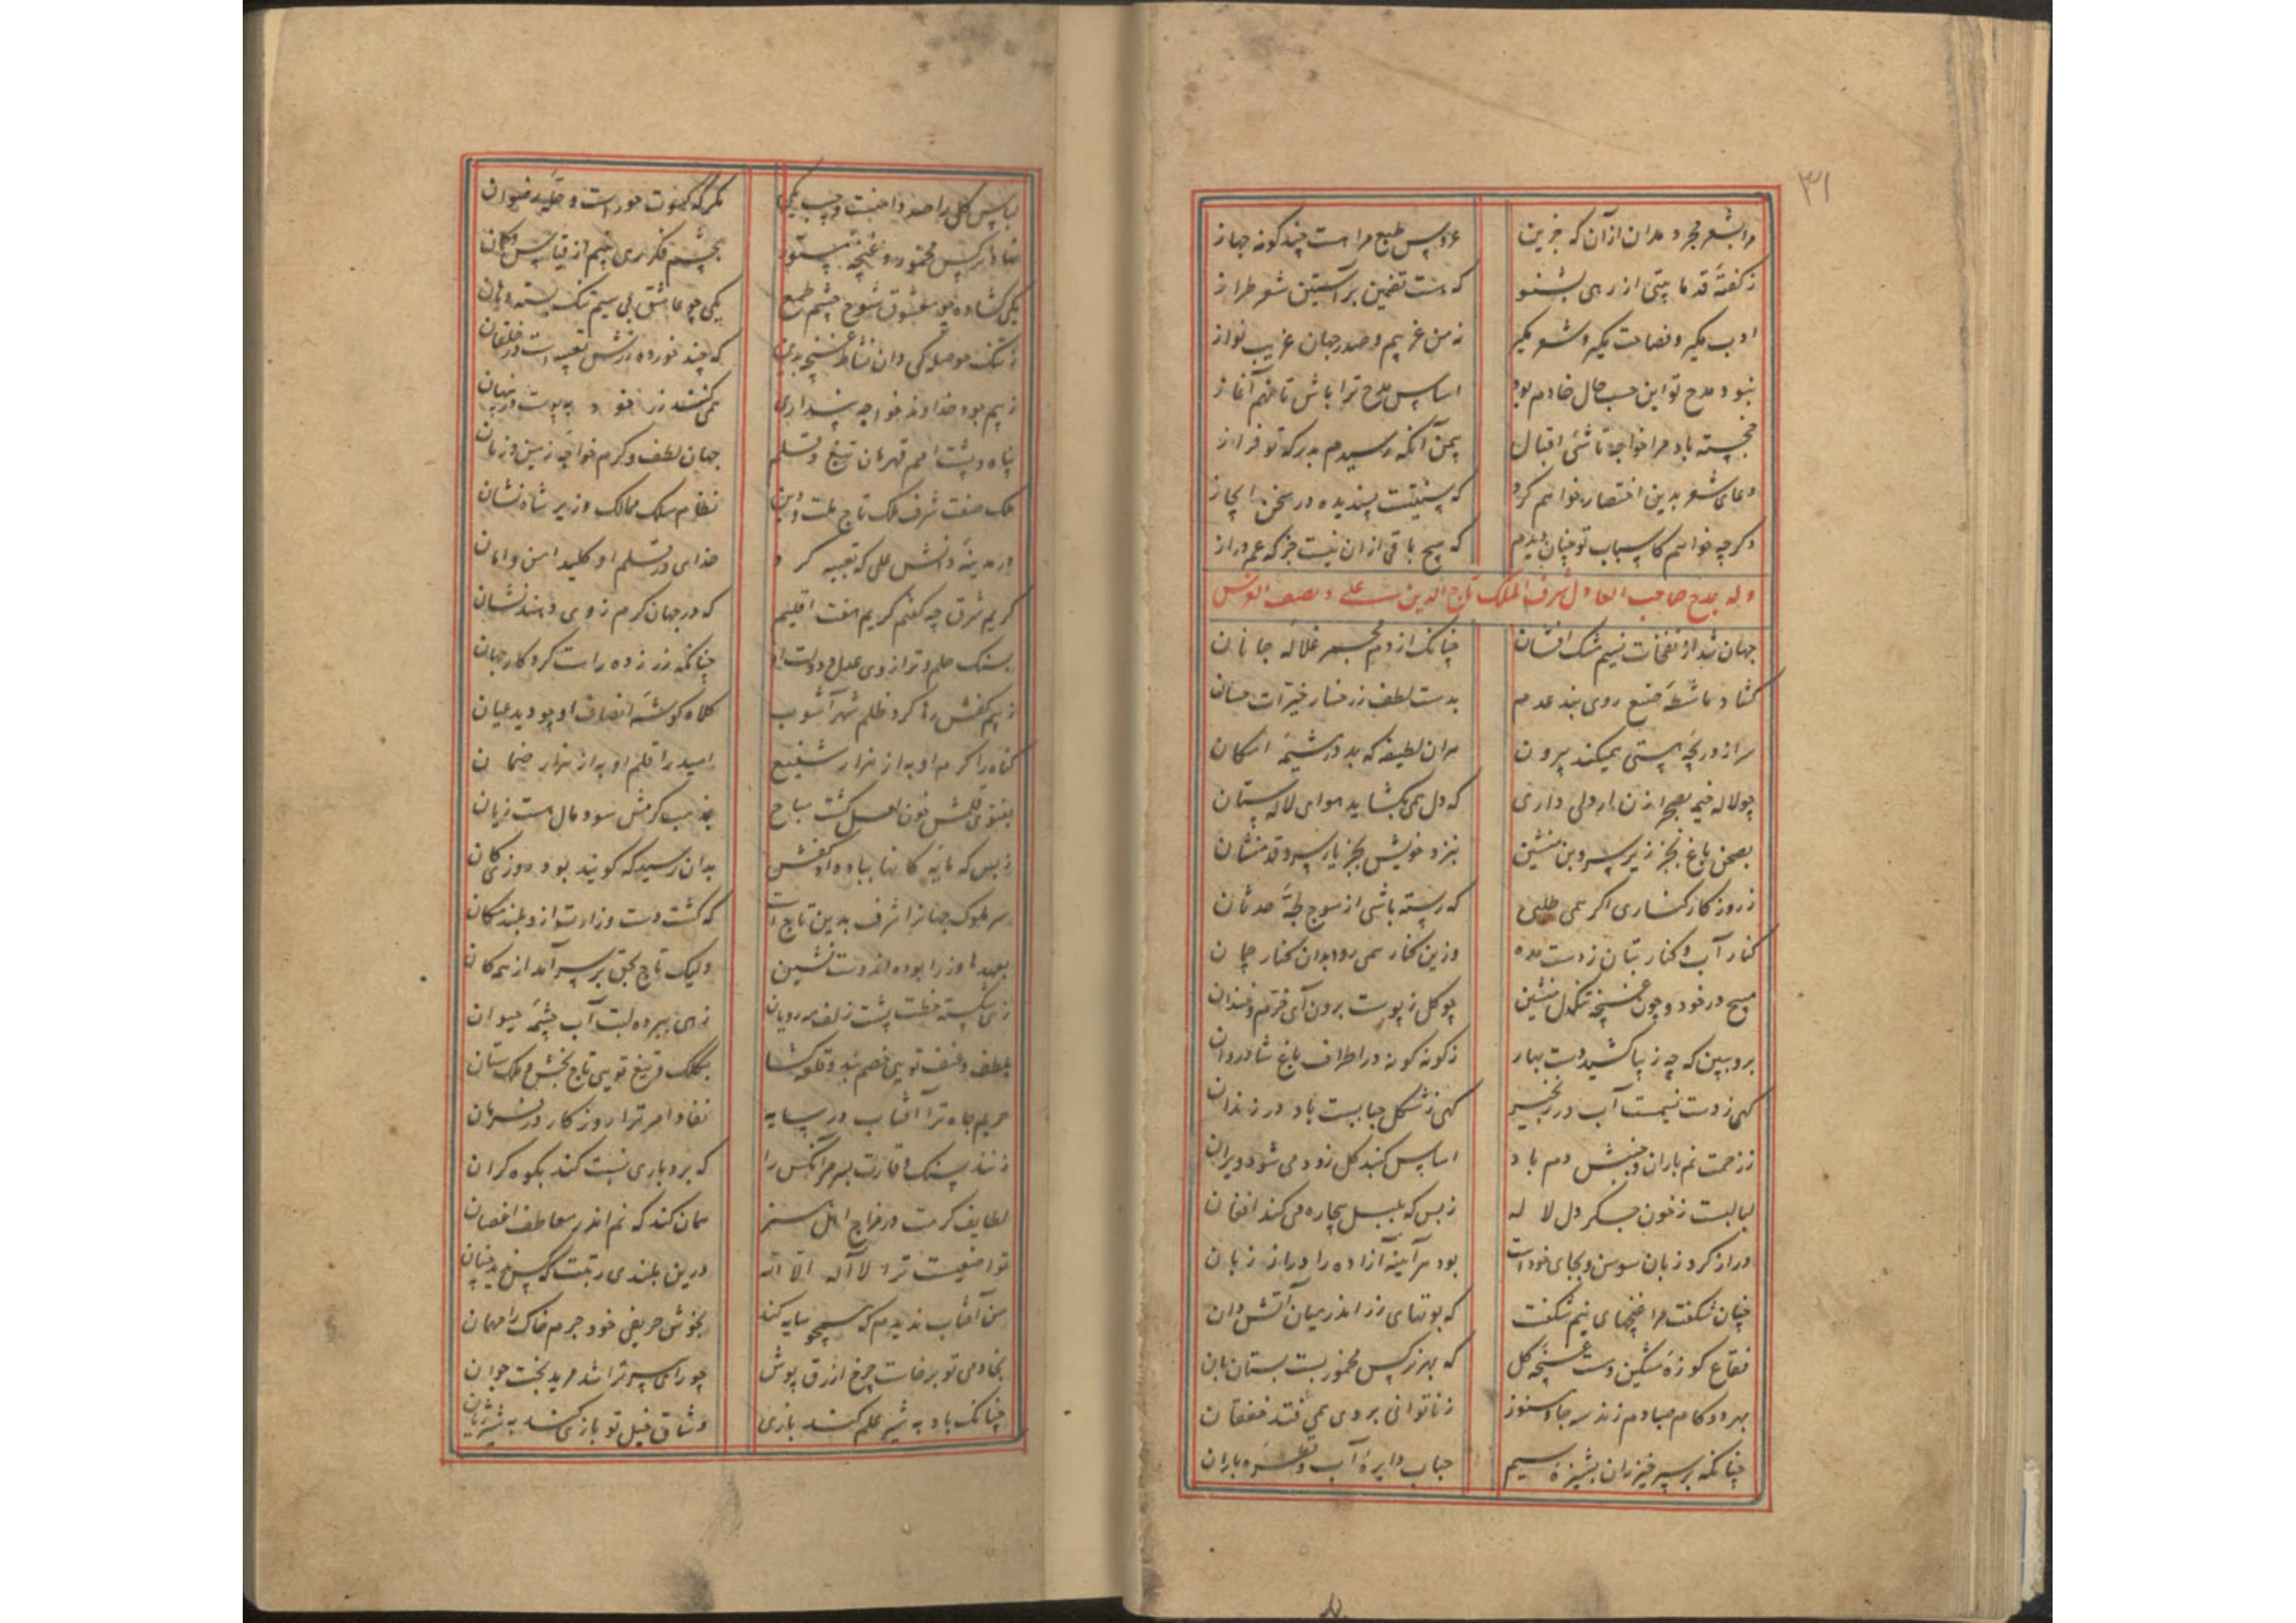 ۳۱
مرا بشعر مجرد مدان از آن که جزین عروس طبع مرا هست چند کونه جهاز
ز کفتهٔ قدما بیتی از رهی بشنو که هست تضمین بر آستین شعر طراز
ادب مکیر و فصاحت مکیر و شعر مکیر نه من غریبم و صدر جهان غریب نواز
نبود مدح تو این حسب حال خادم بود اساس مدح ترا باش تا نهم آغاز
خجسته باد مرا خواجه تاشی اقبال بیمن آنکه رسیدم بدرکه تو فراز
دعای شعر بدین اختصار خواهم کرد که سنتیست پسندیده در سخن ایجاز
وکرچه خواهم کاسباب تو چنان دیدم که هیچ باقی از آن نیست جز که عمر دراز
وله بمدح صاحب العادل شرف الملک تاج الدین علی و یصف
جهان شد از نفحات نسیم مشک افشان چنانک از دم مجمر غلالهٔ جانان
کشاد ماشطهٔ صنع روی بند عدم بدست لطف ز رخسار خیرات حسان
سر از دریچهٔ هستی همیکند بیرون هر آن لطیفه که بد در مشیمهٔ امکان
چو لاله خیمه بصحرا زن ار دلی داری که دل همی بکشاید هوای لالهستان
بصحن باغ بجز زیر سرو بن منشین بنزد خویش بجز یار سرو قد منشان
ز روزکار کناری اکر همی طلبی که رسته باشی از موج لجهٔ حدثان
کنار آب و کنار بتان ز دست مده وزین کنار همی رو بدان کنار چمان
مپیچ در خود و چون غنچه تنکدل منشین چو کل ز پوست برون آی خرم و خندان
برو ببین که چه زیبا کشید دست بهار ز کونه کونه در اطراف باغ شادروان
کهی ز دست نسیمست آب در زنجیر کهی ز شکل حبابست باد در زندان
ز زحمت نم باران و جنبش دم باد اساس کنبد کل زود می شود ویران
لبالبست ز خون جکر دل لاله ز بس که بلبل بیچاره می کند افغان
دراز کرد زبان سوسن و بجای خودست بود هر آینه آزاده را دراز زبان
چنان شکفت مرا غنچهای نیم شکفت که بوتهای زر اندر میان آتش دان
فقاع کوزهٔ مشکین دست غنچهٔ کل که بهر نرکس مخمور بست بستان بان
بهر دو کام صبا دم زند سه جا و هنوز ز ناتوانی بر وی همی فتد خفقان
چنانکه بر سپر خیزران بشیزهٔ سیم حباب دایرهٔ آب و قطرهٔ باران
لباس کل را صد دامنست و جیب یکی مکر که کسوت حورست و حلهٔ رضوان
نهاد نرکس مخمور و غنچهٔ مستور بچشم فکر همی بینم از قیاس و کمان
یکی کشاده چو معشوق شوخ چشم طمع یکی چو عاشق بی سیم تنک بسته دهان
ز تنک حوصلکی دان نشاط غنچه بدین که چند خورده زرش تعبیه است در خلقان
ز بیم جود خداوند خواجه پنداری همی کنند زر خود به پوست در پنهان
پناه و پشت امم قهرمان تیغ و قلم جهان لطف و کرم خواجه زمین و زمان
ملک صفت شرف ملک تاج ملت و دین نظام ملک ممالک وزیر شاه نشان
در مدینهٔ دانش علی که تعبیه کرد خدای در قلم او کلید امن و امان
کریم شرق چه کفتم کریم هفت اقلیم که در جهان کرم زوی دهند نشان
بسنک حلم و ترازوی عدل و دولت او چنانکه زر زده راست کرد کار جهان
ز بیم کفش رها کرد ظلم شهر آشوب کلاه کوشهٔ انصاف او چو دید عیان
کناه را کرم او به از هزار شفیع امید را قلم او به از هزار ضمان
بفتوی قلمش خون لعل کشت مباح بمذهب کرمش سود مال هست زیان
ز بس که مایهٔ کانها بباد داد کفش بدان رسید که کویند بود روزی کان
سر ملوک جهانرا شرف بدین تاج است که کشت دست وزارت از و بلند مکان
بعهدها وزرا بوده اند دست نشین ولیک تاج بحق بر سر آمد از همه کان
زهی شکسته خطت پشت زلف مه رویان زهی ببرده لبت آب چشمهٔ حیوان
بلطف و عنف تویی خصم بند و قلعه کشا بکلک و تیغ تویی تاج بخش و ملک ستان
حریم جاه ترا آفتاب در سایه نفاذ امر ترا روزکار در فرمان
زنند سنک وقارت بسر هر آنکس را که بردباری نسبت کند بکوه کران
لطایف کرمت در مزاج اهل هنر همان کند که نم اندر معاطف اغصان
تواضعیست ترا لا اله الا الله درین بلندی رتبت که کس ندید چنان
من آفتاب ندیدم که همچو سایه کند بخوش حریفی خود جرم خاک را مهمان
بخادمی تو برخاست چرخ ازرق پوش چو رای پیر ترا شد مرید بخت جوان
چنانک باد به شیر علم کند بازی وشاق خیل تو بازی کند به شیر ژیان